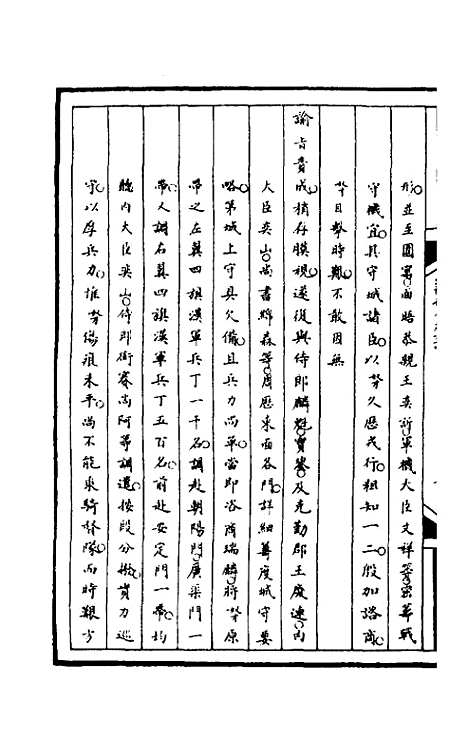 形並至圓寓面晤恭親王奕訢軍機大臣文祥等密籌戰
守機宜其守城諸臣以勞久歷戎行粗知一二殷加諮商
勞目擊時艱不敢因無
諭旨責成稍存膜視遂復與侍郎麟魁寶鋆及克勤郡王慶連內
大臣奕山尚書綿森等周歷東面各門詳細籌度城守要
略第城上守具欠備且兵力尚單當即咨商瑞麟將勞原
帶之左翼四旗漢軍兵丁一千名調赴朝陽門廣渠門一
帶人調右翼四旗漢軍兵丁五百名前赴安定門一帶均
聽內大臣奕山侍郎衛寨尚阿等調遣按段分撥實力巡
守以厚兵力惟勞傷痕未平尚不能乘騎督隊而時艱方